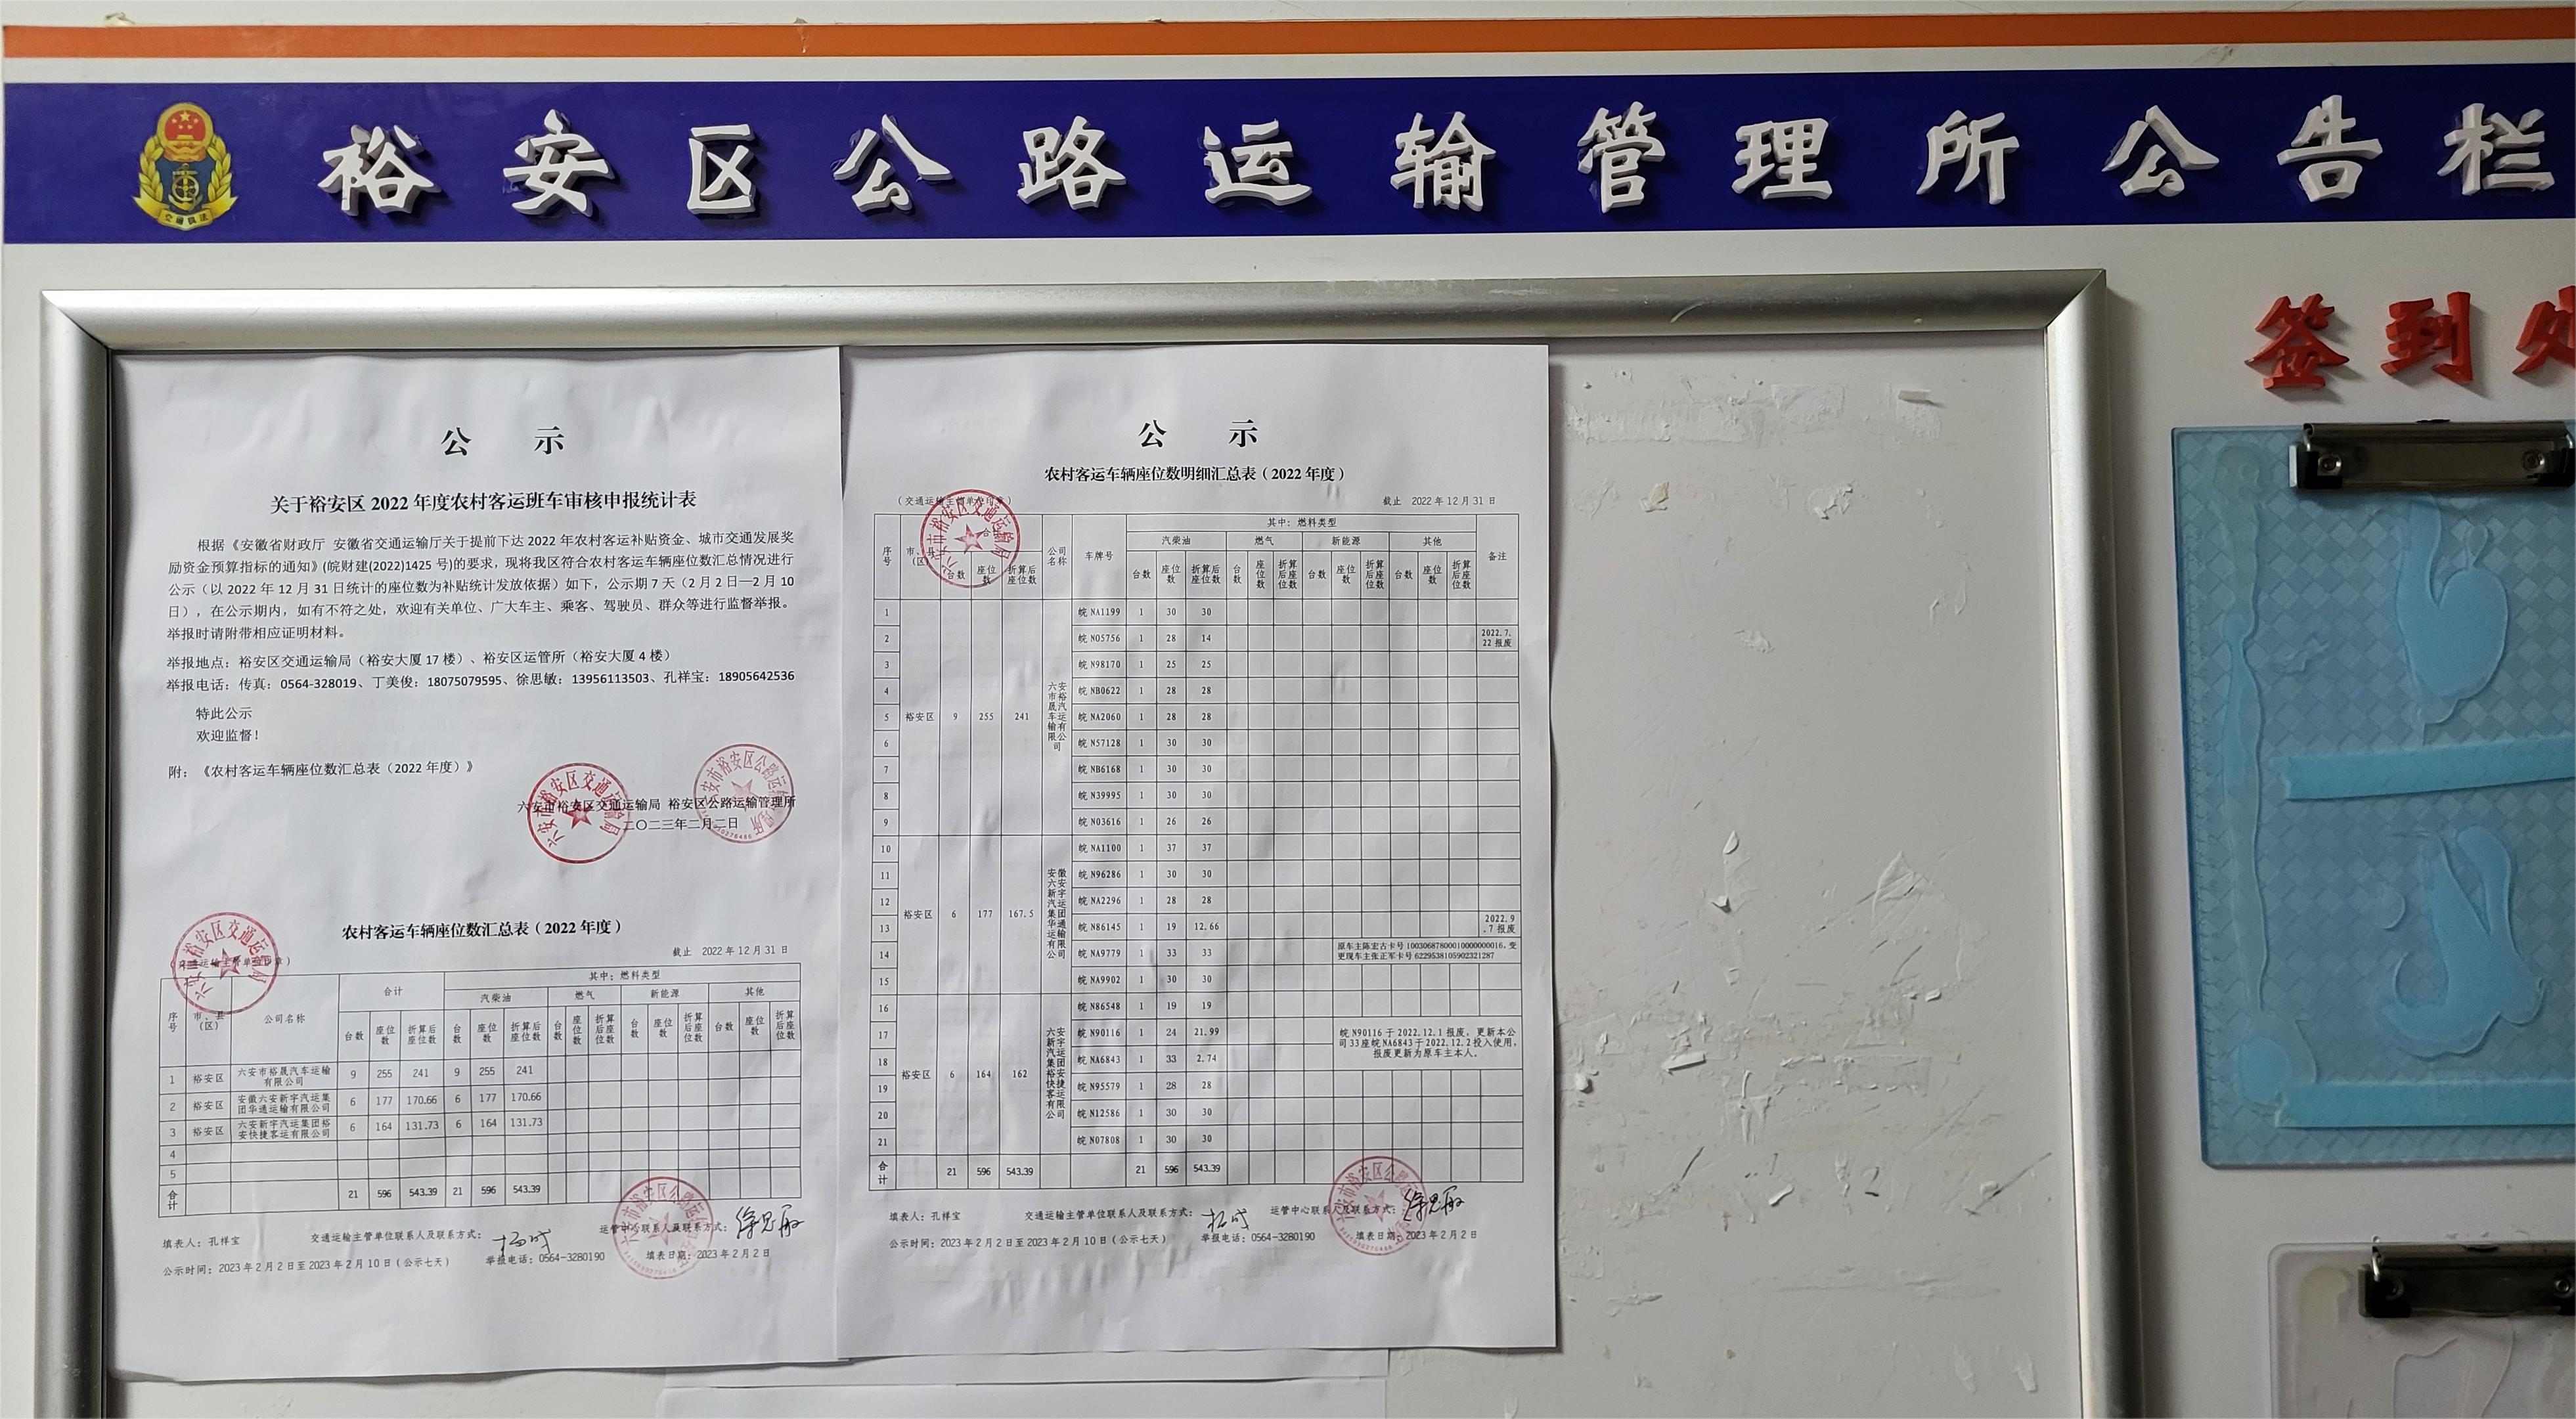 裕安区公路运输管理所公告栏
交通执法
签到处
公 示
关于裕安区 2022 年度农村客运班车审核申报统计表
根据《安徽省财政厅 安徽省交通运输厅关于提前下达 2022 年农村客运补贴资金、城市交通发展奖
励资金预算指标的通知》(皖财建(2022)1425 号)的要求，现将我区符合农村客运车辆座位数汇总情况进行
公示（以 2022 年 12 月 31 日统计的座位数为补贴统计发放依据）如下，公示期 7 天（2 月 2 日—2 月 10
日），在公示期内，如有不符之处，欢迎有关单位、广大车主、乘客、驾驶员、群众等进行监督举报。
举报时请附带相应证明材料。
举报地点：裕安区交通运输局（裕安大厦 17 楼）、裕安区运管所（裕安大厦 4 楼）
举报电话：传真：0564-328019、丁美俊：18075079595、徐思敏：13956113503、孔祥宝：18905642536
特此公示
欢迎监督！
附：《农村客运车辆座位数汇总表（2022 年度）》
六安市裕安区交通运输局 裕安区公路运输管理所
二〇二三年二月二日
农村客运车辆座位数汇总表（2022 年度）
（交通运输主管单位印章） 截止 2022 年 12 月 31 日
序号 市、县（区） 公司名称 合计 其中：燃料类型
汽柴油 燃气 新能源 其他
台数 座位数 折算后座位数 台数 座位数 折算后座位数 台数 座位数 折算后座位数 台数 座位数 折算后座位数 台数 座位数 折算后座位数
1 裕安区 六安市裕晟汽车运输有限公司 9 255 241 9 255 241
2 裕安区 安徽六安新宇汽运集团华通运输有限公司 6 177 170.66 6 177 170.66
3 裕安区 六安新宇汽运集团裕安快捷客运有限公司 6 164 131.73 6 164 131.73
4
5
合计 21 596 543.39 21 596 543.39
填表人：孔祥宝 交通运输主管单位联系人及联系方式： 运管中心联系人及联系方式：徐思敏
公示时间：2023 年 2 月 2 日至 2023 年 2 月 10 日（公示七天） 举报电话：0564-3280190 填表日期：2023 年 2 月 2 日
公 示
农村客运车辆座位数明细汇总表（2022 年度）
（交通运输主管单位印章） 截止 2022 年 12 月 31 日
序号 市、（区） 合 公司名称 车牌号 其中：燃料类型 备注
汽柴油 燃气 新能源 其他
台数 座位数 折算后座位数 台数 座位数 折算后座位数 台数 座位数 折算后座位数 台数 座位数 折算后座位数 台数 座位数 折算后座位数
裕安区 9 255 241 六安市裕晟汽车运输有限公司
1 皖 NA1199 1 30 30
2 皖 N05756 1 28 14 2022.7.22 报废
3 皖 N98170 1 25 25
4 皖 NB0622 1 28 28
5 皖 NA2060 1 28 28
6 皖 N57128 1 30 30
7 皖 NB6168 1 30 30
8 皖 N39995 1 30 30
9 皖 N03616 1 26 26
裕安区 6 177 167.5 安徽六安新宇汽运集团华通运输有限公司
10 皖 NA1100 1 37 37
11 皖 N96286 1 30 30
12 皖 NA2296 1 28 28
13 皖 N86145 1 19 12.66 2022.9.7 报废
14 皖 NA9779 1 33 33 原车主陈宏古卡号 10030687800010000000016，变更现车主张正军卡号 6229538105902321287
15 皖 NA9902 1 30 30
裕安区 6 164 162 六安新宇汽运集团裕安快捷客运有限公司
16 皖 N86548 1 19 19
17 皖 N90116 1 24 21.99 皖 N90116 于 2022.12.1 报废，更新本公司 33 座皖 NA6843 于 2022.12.2 投入使用，报废更新为原车主本人。
18 皖 NA6843 1 33 2.74
19 皖 N95579 1 28 28
20 皖 N12586 1 30 30
21 皖 N07808 1 30 30
合计 21 596 543.39 21 596 543.39
填表人：孔祥宝 交通运输主管单位联系人及联系方式： 运管中心联系人及联系方式：徐思敏
公示时间：2023 年 2 月 2 日至 2023 年 2 月 10 日（公示七天） 举报电话：0564-3280190 填表日期：2023 年 2 月 2 日